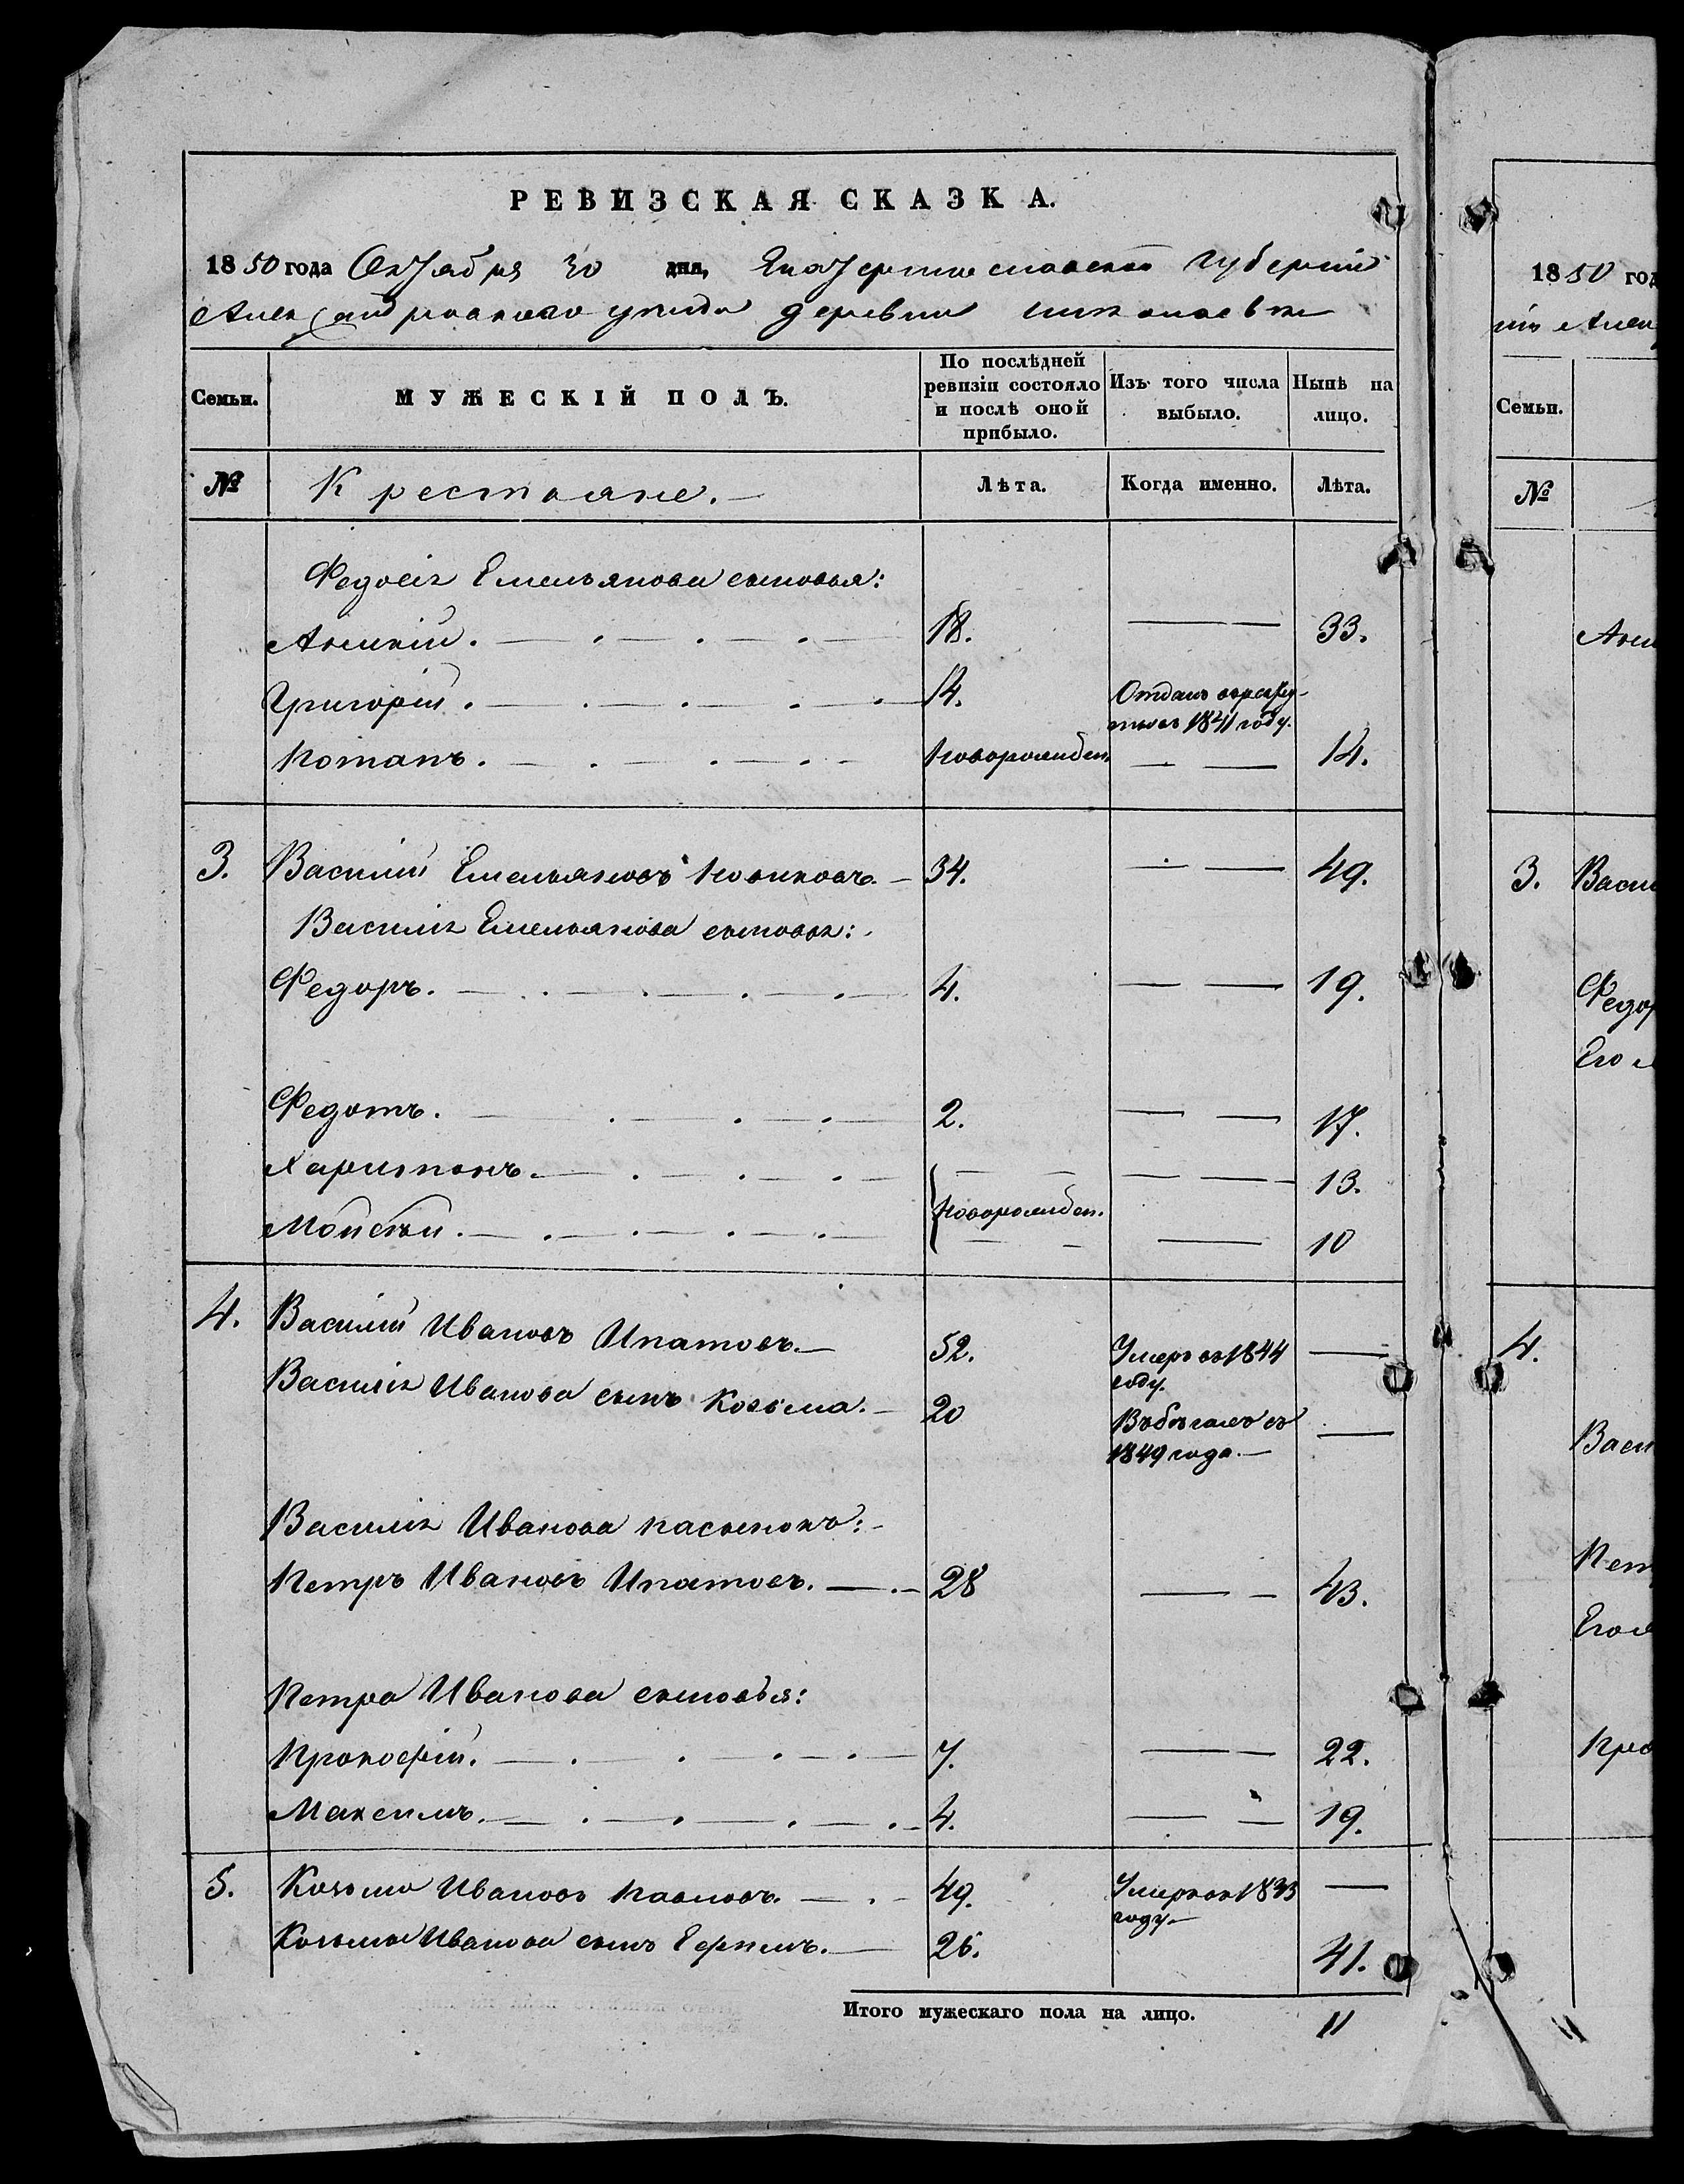 РЕВИЗСКАЯ СКАЗКА.
1850 года Октября 30 дня, Екатеринославской губернии
Александровского уезда деревни Николаевки
Семьи.
МУЖЕСКІЙ ПОЛЪ.
По послѣдней ревизіи состояло и послѣ оной прибыло.
Изъ того числа выбыло.
Нынѣ на лицо.
№ Крестьяне.— Лѣта. Когда именно. Лѣта.
Федосія Емельянова сыновья:
18. — — 33.
Григорій. 14. Отданъ в рекруты въ 1841 году.
Потапъ. Новорожден. — — 14.
3. Василій Емельяновъ Новиковъ.— 34. — — 49.
Василія Емельянова сыновья:
Федоръ. 4. — — 19.
Федотъ. 2. — — 17.
Харитонъ. — — 13.
Новорожден.
Мойсей. — 10
4. Василій Ивановъ Ипатовъ.— 52. Умеръ въ 1844 году. —
Василія Иванова сынъ Козьма.— 20 Въ бѣгахъ съ 1849 года.— —
Василія Иванова пасынокъ:
Петръ Ивановъ Ипатовъ. 28 — — 43.
Петра Иванова сыновья:
Прокофій. 7. — — 22.
Максимъ. 4. — — 19.
5. Козьма Ивановъ Павловъ. 49. Умеръ въ 18 году.— —
Козьмы Иванова сынъ Ефимъ.— 26. 41.
Итого мужескаго пола на лицо. 11
1850 год
Семьи.
№
3. Васи
Федор
Его
4.
Васи
Петр
Его
Про
11